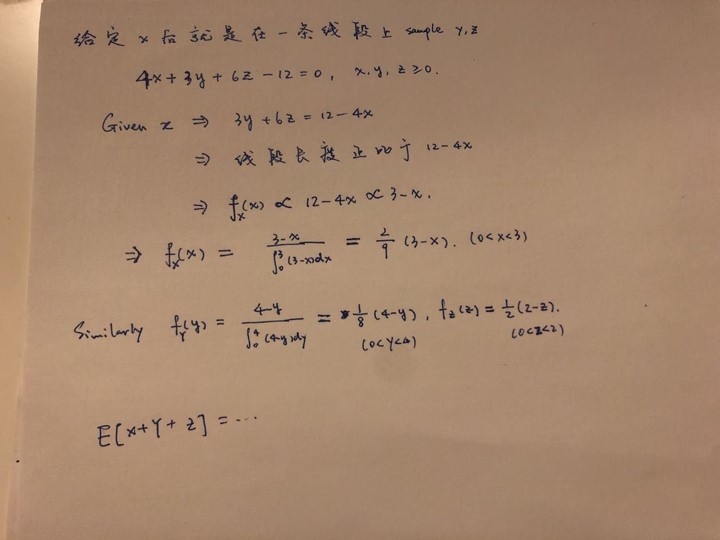 给定 x 后就是在一条线段上 sample y,z
4x+3y+6z-12=0, x.y,z≥0.
Given x ⇒ 3y+6z=12-4x
⇒ 线段长度正比于 12-4x
⇒ f_X(x) ∝ 12-4x ∝ 3-x.
⇒ f_X(x) = \frac{3-x}{∫_0^3 (3-x)dx} = \frac{2}{9} (3-x). (0<x<3)
Similarly f_Y(y) = \frac{4-y}{∫_0^4 (4-y)dy} = \frac{1}{8} (4-y), f_Z(z) = \frac{1}{2} (2-z).
(0<y<4) (0<z<2)
E[x+Y+z] = ...